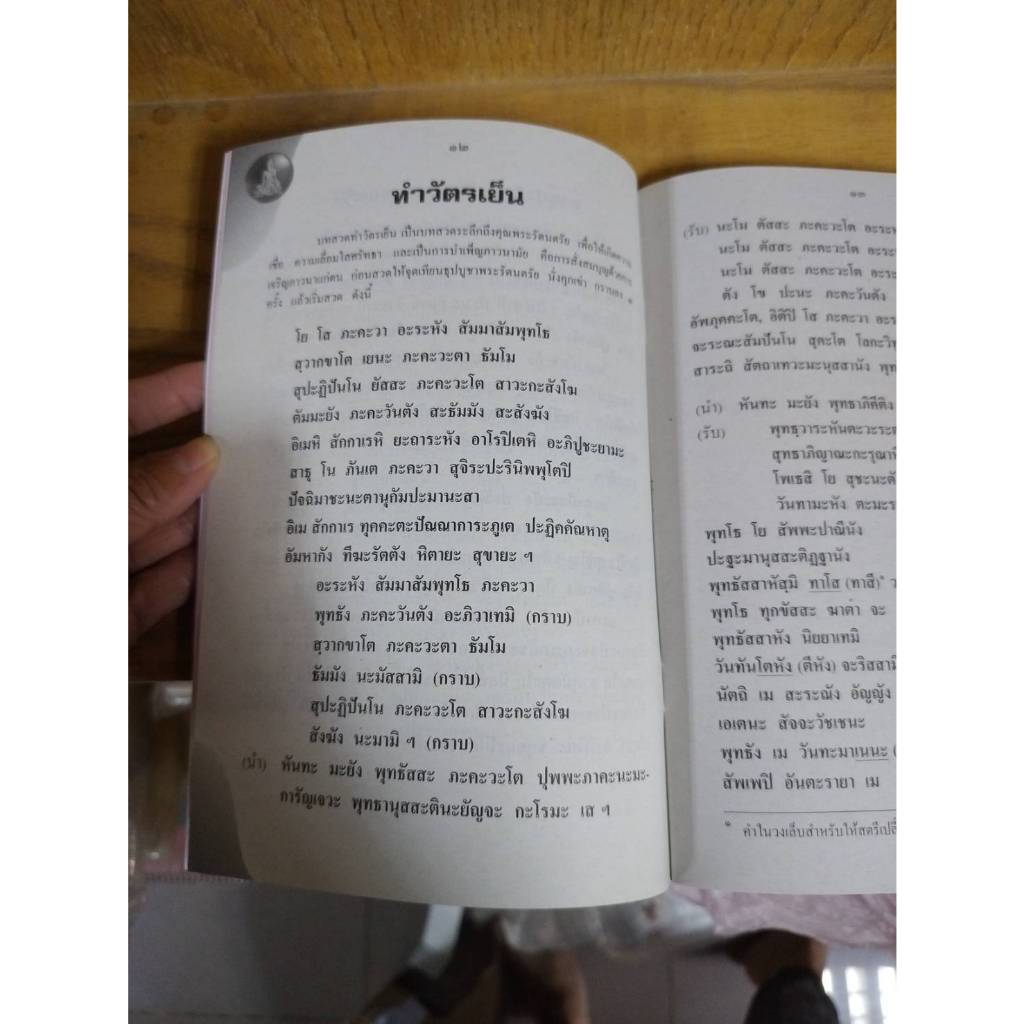 ๑๒
ทำวัตรเย็น
บทสวดทำวัตรเย็น เป็นบทสวดระลึกถึงคุณพระรัตนตรัย เพื่อให้เกิดความ
เชื่อ ความเลื่อมใสศรัทธา และเป็นการบำเพ็ญภาวนามัย คือการสั่งสมบุญด้วยการ
เจริญภาวนาแก่ตน ก่อนสวดให้จุดเทียนธูปบูชาพระรัตนตรัย นั่งคุกเข่า กราบลง ๓
ครั้ง แล้วเริ่มสวด ดังนี้
โย โส ภะคะวา อะระหัง สัมมาสัมพุทโธ
สฺวากขาโต เยนะ ภะคะวะตา ธัมโม
สุปะฏิปันโน ยัสสะ ภะคะวะโต สาวะกะสังโฆ
ตัมมะยัง ภะคะวันตัง สะธัมมัง สะสังฆัง
อิเมหิ สักกาเรหิ ยะถาระหัง อาโรปิเตหิ อะภิปูชะยามะ
สาธุ โน ภันเต ภะคะวา สุจิระปะรินิพพุโตปิ
ปัจฉิมาชะนะตานุกัมปะมานะสา
อิเม สักกาเร ทุคคะตะปัณณาการะภูเต ปะฏิคคัณหาตุ
อัมหากัง ทีฆะรัตตัง หิตายะ สุขายะ ฯ
อะระหัง สัมมาสัมพุทโธ ภะคะวา
พุทธัง ภะคะวันตัง อะภิวาเทมิ (กราบ)
สฺวากขาโต ภะคะวะตา ธัมโม
ธัมมัง นะมัสสามิ (กราบ)
สุปะฏิปันโน ภะคะวะโต สาวะกะสังโฆ
สังฆัง นะมามิ ฯ (กราบ)
(นำ) หันทะ มะยัง พุทธัสสะ ภะคะวะโต ปุพพะภาคะนะมะ-
การัญเจวะ พุทธานุสสะตินะยัญจะ กะโรมะ เส ฯ
๑๓
(รับ) นะโม ตัสสะ ภะคะวะโต
นะโม ตัสสะ ภะคะวะโต
นะโม ตัสสะ ภะคะวะโต
ตัง โข ปะนะ ภะคะวันตัง
อัพภุคคะโต, อิติปิ โส ภะคะวา
จะระณะสัมปันโน สุคะโต
สาระถิ สัตถาเทวะมะนุสสานัง
(นำ) หันทะ มะยัง พุทธาภิคีติง
(รับ) พุทธฺวาระหันตะวะระ
สุทธาภิญาณะกะรุณา
โพเธสิ โย สุชะนะ
วันทามะหัง ตะมะ
พุทโธ โย สัพพะปาณีนัง
ปะฐะมานุสสะติฏฐานัง
พุทธัสสาหัสฺมิ ทาโส (ทาสี)* ว
พุทโธ ทุกขัสสะ ฆาตา จะ
พุทธัสสาหัง นิยยาเทมิ
วันทันโตหัง (ตีหัง) จะริสสามิ
นัตถิ เม สะระณัง อัญญัง
เอเตนะ สัจจะวัชเชนะ
พุทธัง เม วันทะมาเนนะ (
สัพเพปิ อันตะรายา เม
* คำในวงเล็บสำหรับให้สตรี